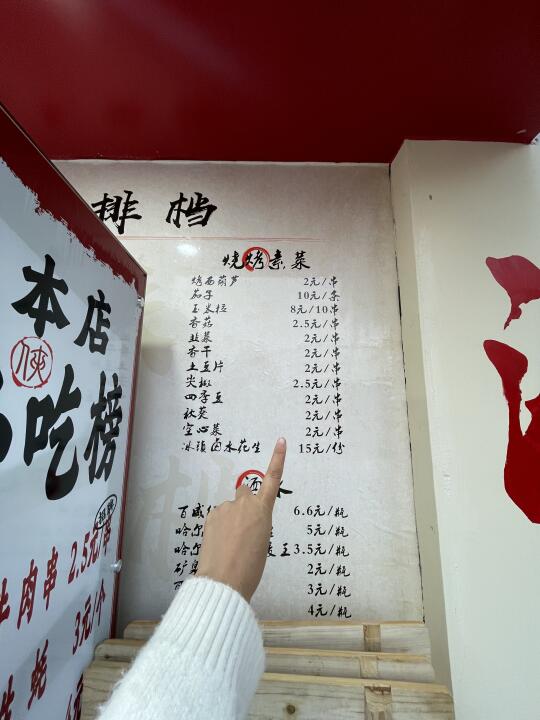 排档
烧烤素菜
烤西葫芦 2元/串
茄子 10元/条
玉米粒 8元/10串
香菇 2.5元/串
韭菜 2元/串
香干 2元/串
土豆片 2元/串
尖椒 2.5元/串
四季豆 2元/串
秋葵 2元/串
空心菜 2元/串
冰镇卤水花生 15元/份
酒水
百威 6.6元/瓶
哈尔 5元/瓶
哈尔 王 3.5元/瓶
矿 2元/瓶
3元/瓶
4元/瓶
本店
侠
吃榜
肉串 2.5元/串
蚝 3元/个